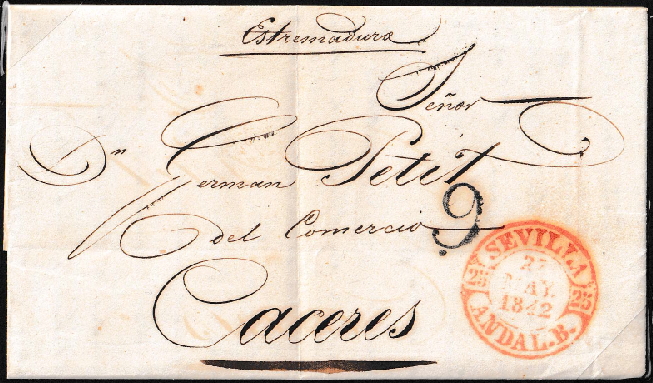 Estremadura
Señor
Dn German Petit
del Comercio
9
Caceres
SEVILLA
25 25
MAY.
1842
ANDAL.B.